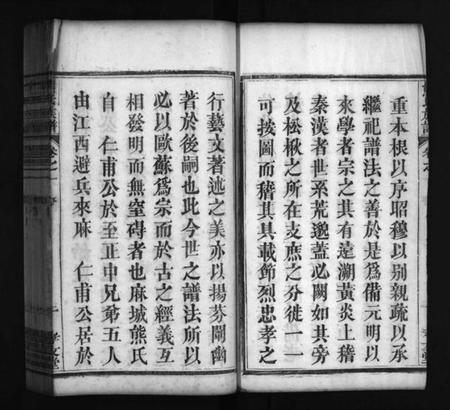 重本根以序昭穆以别親疏以承
繼祀譜法之善於是爲備元明以
來學者宗之其有遠溯黃炎上稽
秦漢者世系荒邈蓋必闕如其旁
及松楸之所在支庶之分徙一一
可按圖而稽其具載節烈忠孝之
行藝文著述之美亦以揚芬闡幽
著於後嗣也此今世之譜法所以
必以歐蘇爲宗而於古之經義互
相發明而無窒碍者也麻城熊氏
自 仁甫公於至正中兄弟五人
由江西避兵來麻 仁甫公居於